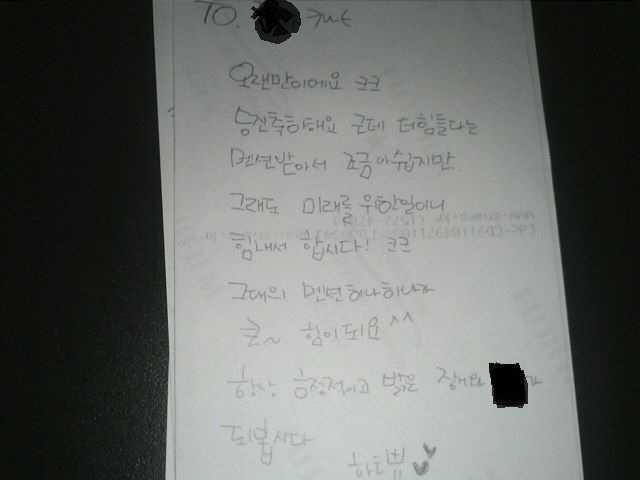 TO.
오랜만이에요 ㅋㅋ
승진축하해요 근데 더힘들다는
멘션받아서 조금아쉽지만
그래도 미래를 위한일이니
힘내서 합시다! ㅋㅋ
그대의 멘션하나하나가
큰~ 힘이되요^^
항상 긍정적이고 밝은
되봅시다
하트뿅